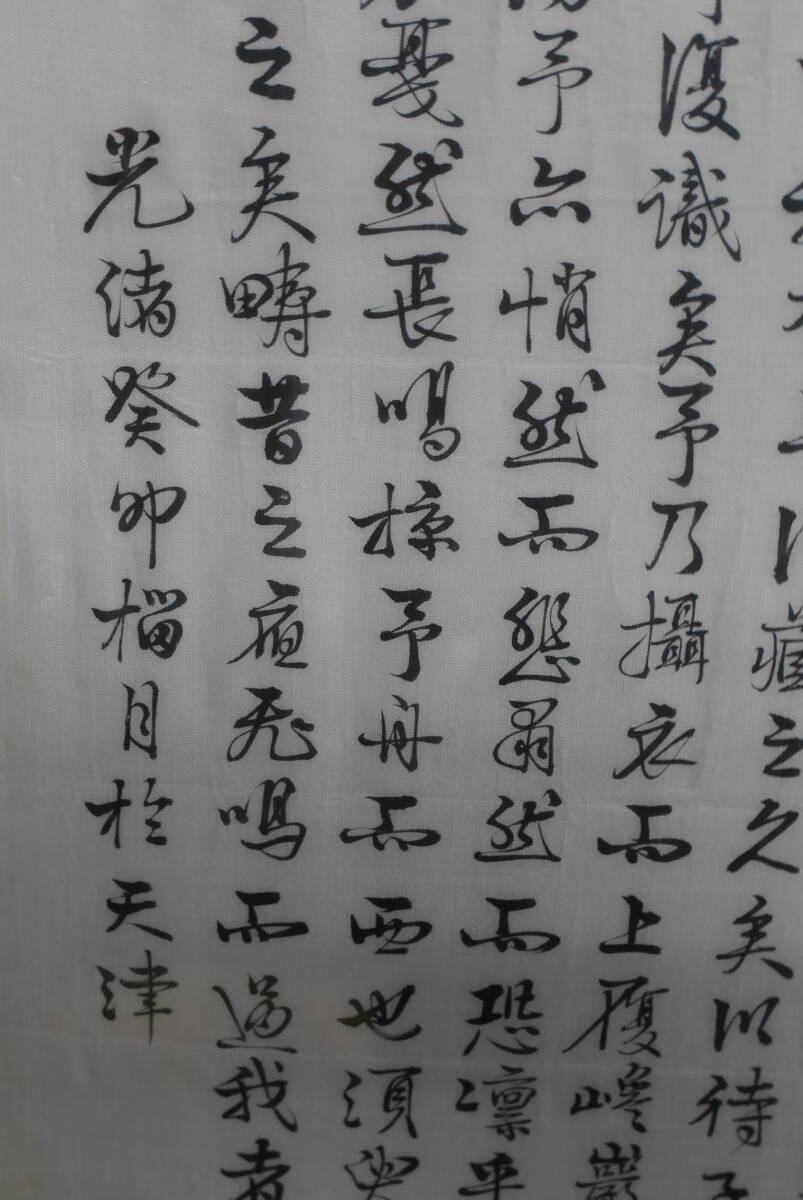 藏之久矣以待子
復識矣予乃攝衣而上履巉巖
予亦悄然而悲肅然而恐凜乎
戛然長鳴掠予舟而西也須臾
之矣疇昔之夜飛鳴而過我者
光緒癸卯榴月於天津